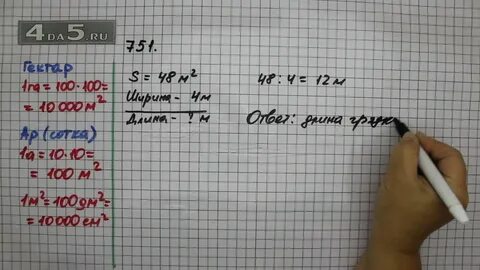 4DA5.RU
751.
Гектар
1га = 100·100 =
= 10 000 м²
Ар (сотка)
1а = 10·10 =
= 100 м²
1м² = 100дм² =
= 10000 см²
S = 48 м²
Ширина - 4м
Длина - ? м
48 : 4 = 12 м
Ответ: длина грядки